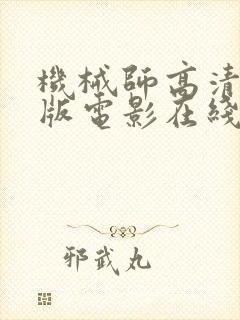 機械師高清
版電影在綫
邪武丸